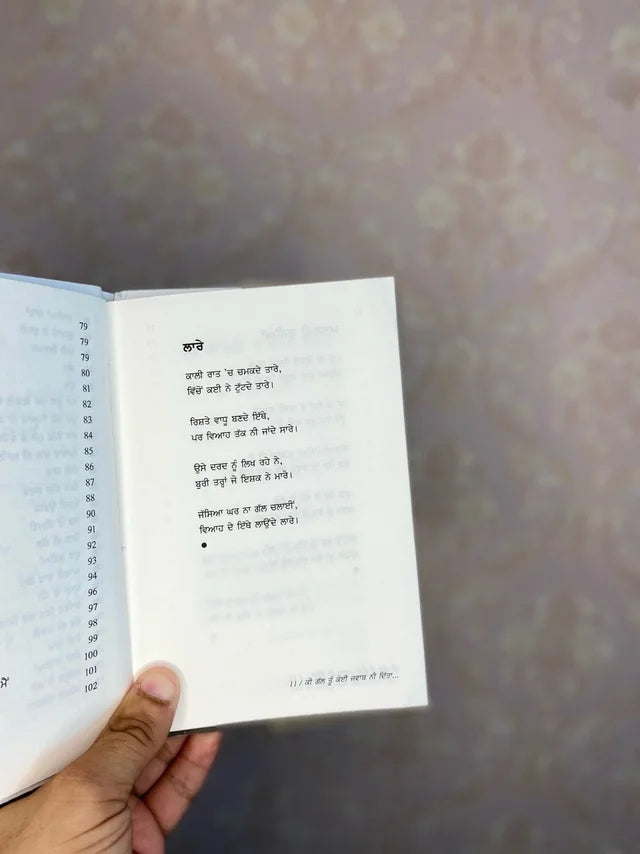 79
79
79
80
81
82
83
84
85
86
87
88
90
91
92
93
94
96
97
98
99
100
ਮੇਂ 101
102
ਲਾਰੇ
ਕਾਲੀ ਰਾਤ 'ਚ ਚਮਕਦੇ ਤਾਰੇ,
ਵਿੱਚੋਂ ਕਈ ਨੇ ਟੁੱਟਦੇ ਤਾਰੇ।
ਰਿਸ਼ਤੇ ਵਾਧੂ ਬਣਦੇ ਇੱਥੇ,
ਪਰ ਵਿਆਹ ਤੱਕ ਨੀ ਜਾਂਦੇ ਸਾਰੇ।
ਉਸੇ ਦਰਦ ਨੂੰ ਲਿਖ ਰਹੇ ਨੇ,
ਬੁਰੀ ਤਰ੍ਹਾਂ ਜੋ ਇਸ਼ਕ ਨੇ ਮਾਰੇ।
ਜੱਸਿਆ ਘਰ ਨਾ ਗੱਲ ਚਲਾਈਂ,
ਵਿਆਹ ਦੇ ਇੱਥੇ ਲਾਉਂਦੇ ਲਾਰੇ।
●
11 / ਕੀ ਗੱਲ ਤੂੰ ਕੋਈ ਜਵਾਬ ਨੀ ਦਿੱਤਾ...